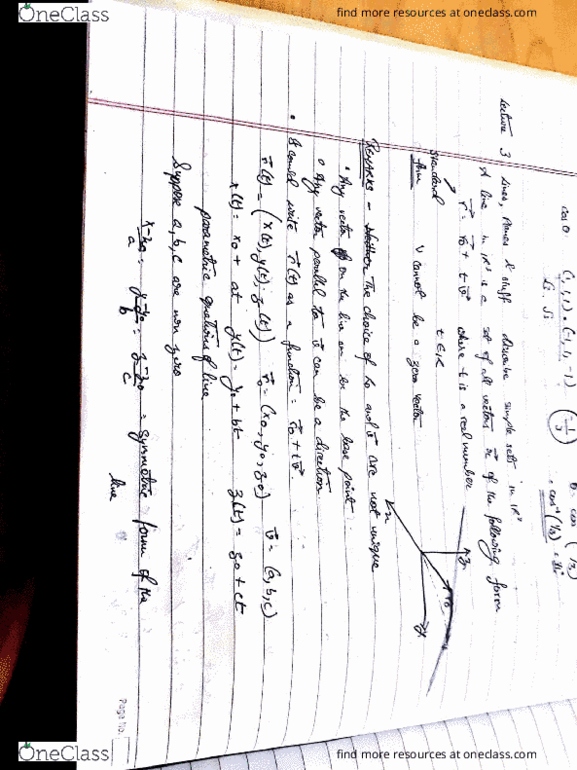 OneClass
find more resources at oneclass.com
cos θ = (1,1,1)•(-1,1,-1)
√3 . √3
(-1/3)
cos⁻¹(1/3)
Lecture 3 Lines, Planes & stuff describe simple sets in IRⁿ
A line in IRⁿ is a set of all vectors r⃗ of the following form
r⃗ = r⃗₀ + tv⃗ where t is a real number
Standard form
t ∈ IR
v cannot be a zero vector
Remarks - The choice of r₀ and v⃗ are not unique
• Any vector on the line can be the base point
• Any vector parallel to v⃗ can be a direction
• It could write r⃗(t) as a function = r⃗₀ + tv⃗
r⃗(t) = (x(t), y(t), z(t)) r⃗₀ = (x₀, y₀, z₀) v⃗ = (a, b, c)
x(t) = x₀ + at y(t) = y₀ + bt z(t) = z₀ + ct
parametric equations of line
Suppose a, b, c are non zero
x-x₀/a = y-y₀/b = z-z₀/c = symmetric form of the
line
Page No.
OneClass
find more resources at oneclass.com